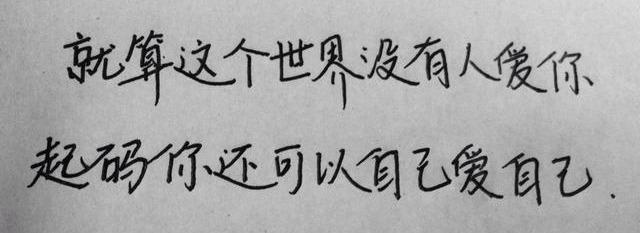 就算这个世界没有人爱你
起码你还可以自己爱自己.